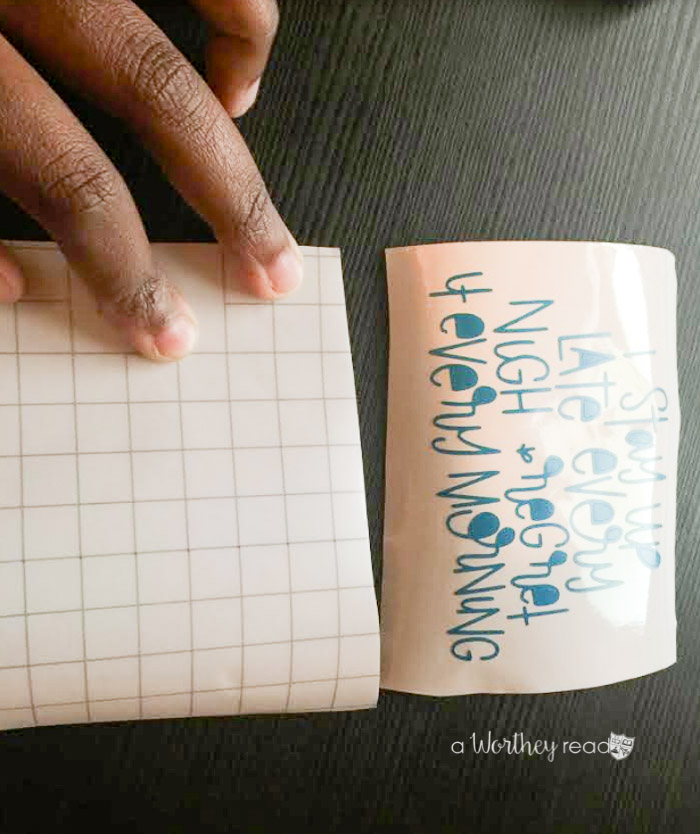 I Stay up
LATE every
NIGHt & reGret
it every MorNiNG
a Worthey read